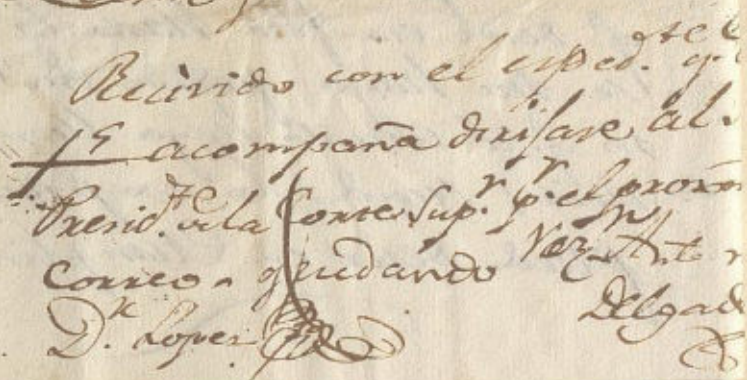 Recivido con el exped.te q.e
se acompaña dirijase al
Presid.te de la Corte Sup.r p.r el proxm
Correo
Lopez Delgad